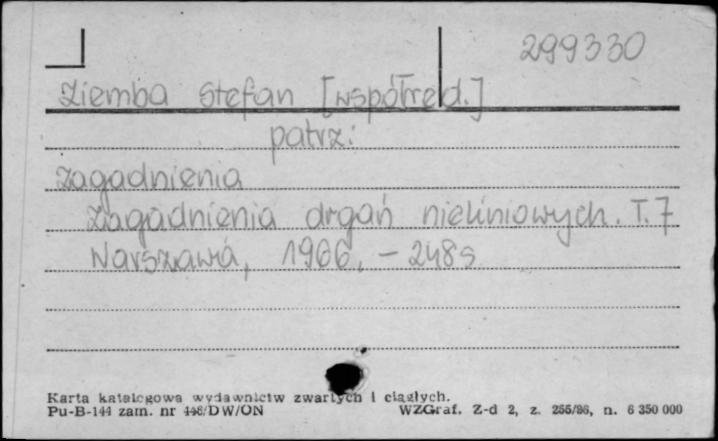 299330
Ziemba Stefan [współred.]
patrz:
Zagadnienia
Zagadnienia drgań nieliniowych. T. 7
Warszawa, 1966. - 248s
Karta katalogowa wydawnictw zwartych i ciągłych.
Pu-B-144 zam. nr 448/DW/ON WZGraf. Z-d 2, z. 255/86, n. 6 350 000